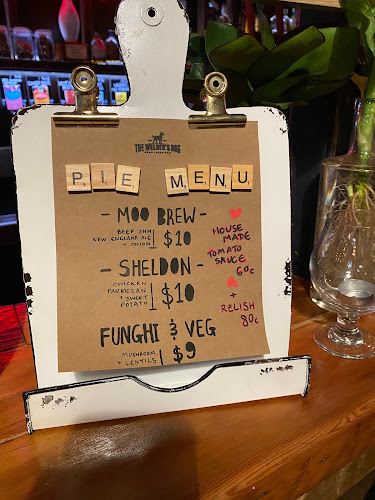 THE WELDER'S DOG
PIE MENU
- MOO BREW -
BEEF, OUR
NEW ENGLAND ALE
+ ONION
$10
- SHELDON -
CHICKEN
PARMESAN
+ SWEET
POTATO
$10
FUNGHI & VEG
MUSHROOM
+ LENTILS
$9
HOUSE
MADE
TOMATO
SAUCE
60c
+
RELISH
80c